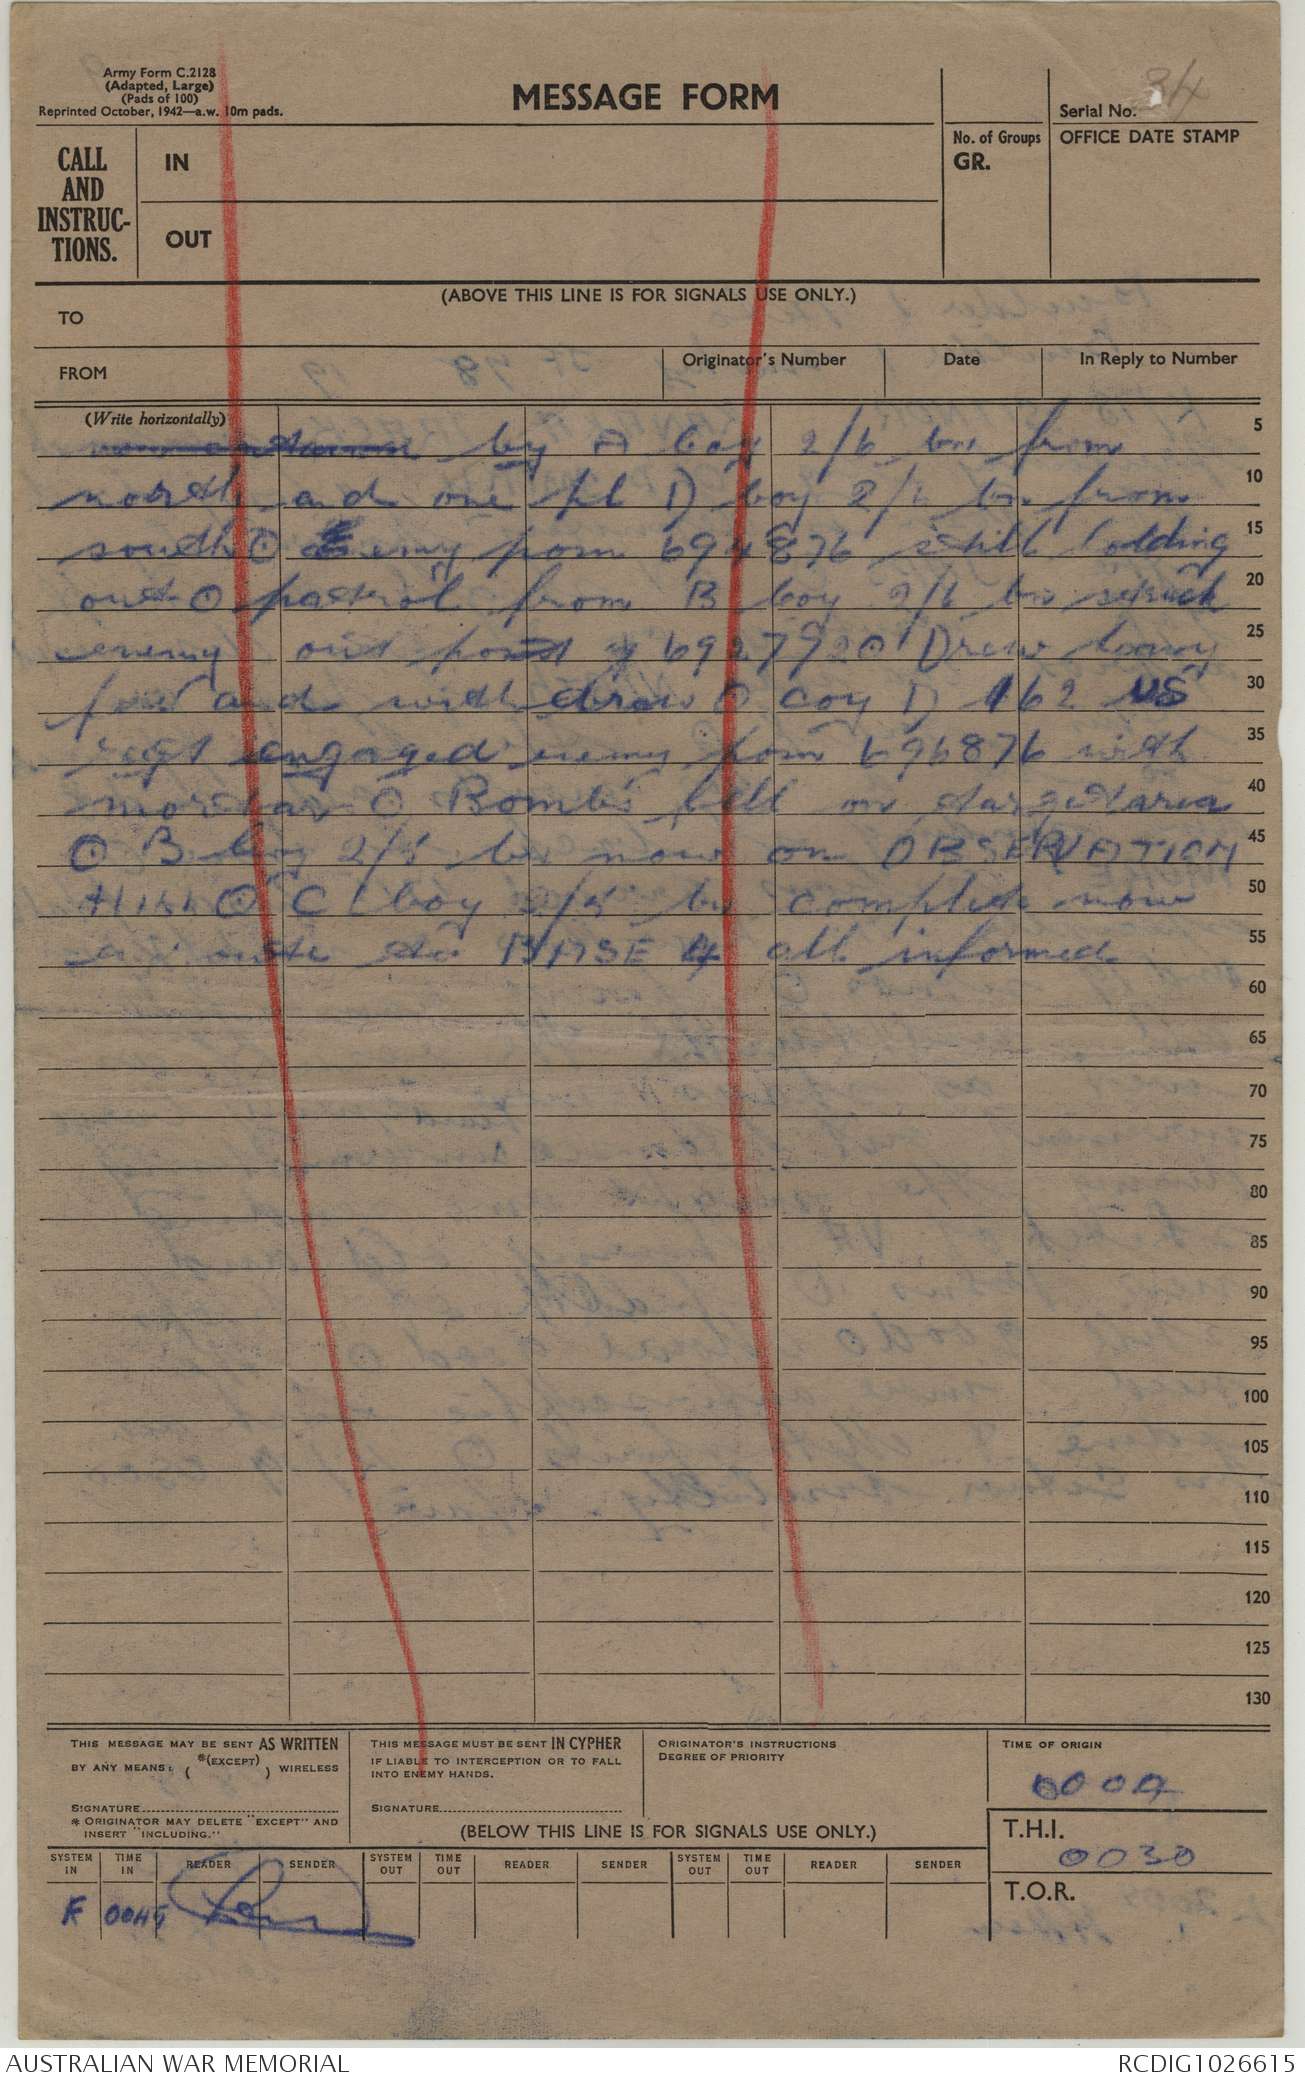 Army Form C.2128
(Adapted, Large)
(Pads of 100)
Reprinted October, 1942—a.w. 10m pads.
MESSAGE FORM
Serial No. 34
CALL AND INSTRUC- TIONS.
IN
OUT
No. of Groups
GR.
OFFICE DATE STAMP
(ABOVE THIS LINE IS FOR SIGNALS USE ONLY.)
TO
FROM
Originator's Number
Date
In Reply to Number
(Write horizontally)
by A coy 2/6 bn from 5
north and one pl D coy 2/6 bn from 10
south ⊙ enemy posn 694876 still holding 15
out ⊙ patrol from B coy 2/6 bn struck 20
enemy out post 692792 ⊙ Drew heavy 25
fire and withdrew ⊙ coy D 162 US 30
regt engaged enemy posn 696876 with 35
mortar ⊙ Bombs fell on target area 40
⊙ B coy 2/5 bn now on OBSERVATION 45
HILL ⊙ C coy 2/5 bn complete now 50
en route to BASE 4 all informed 55
60
65
70
75
80
85
90
95
100
105
110
115
120
125
130
THIS MESSAGE MAY BE SENT AS WRITTEN
BY ANY MEANS: ( *(EXCEPT) ) WIRELESS
SIGNATURE
* ORIGINATOR MAY DELETE "EXCEPT" AND
INSERT "INCLUDING."
THIS MESSAGE MUST BE SENT IN CYPHER
IF LIABLE TO INTERCEPTION OR TO FALL
INTO ENEMY HANDS.
SIGNATURE
ORIGINATOR'S INSTRUCTIONS
DEGREE OF PRIORITY
TIME OF ORIGIN
(BELOW THIS LINE IS FOR SIGNALS USE ONLY.)
T.H.I.
0030
T.O.R.
SYSTEM IN
TIME IN
READER
SENDER
SYSTEM OUT
TIME OUT
READER
SENDER
SYSTEM OUT
TIME OUT
READER
SENDER
AUSTRALIAN WAR MEMORIAL
RCDIG1026615